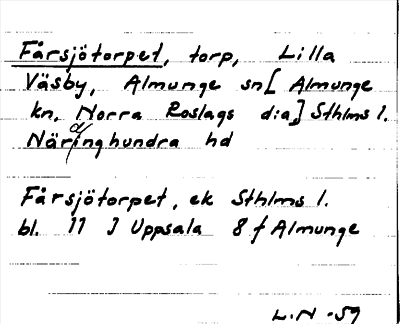 Fårsjötorpet, torp, Lilla
Väsby, Almunge sn [Almunge
kn, Norra Roslags d:a] Sthlms l.
Närdinghundra hd
Fårsjötorpet, ek Sthlms l.
bl. 11 J Uppsala 8 f Almunge
L.N -59